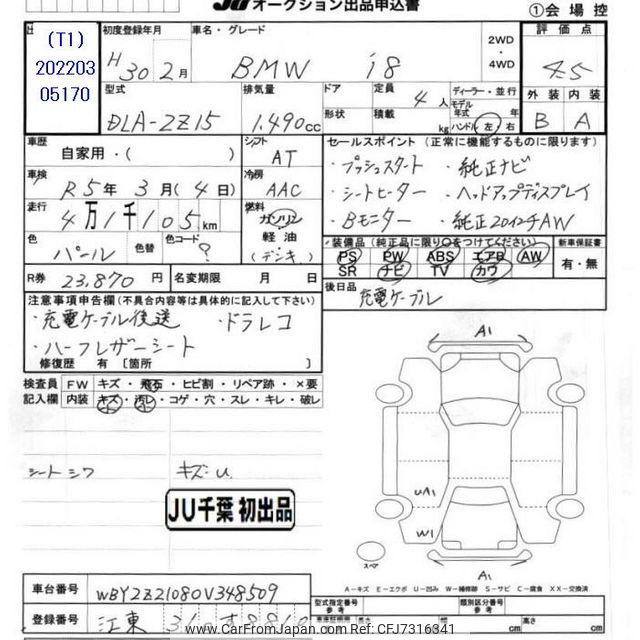 オークション出品申込書
①会場控
(T1)
202203
05170
初度登録年月 車名・グレード 2WD・4WD 評価点
H30 2月 BMW i8 4.5
型式 排気量 ドア 定員 ディーラー・並行
DLA-2Z15 1,490cc 4人 モデル年式 年
形状 積載 kg ハンドル 左・右
外装 内装
B A
車歴 自家用・( ) シフト AT
車検 R5年3月(4日) 冷房 AAC
走行 4万1千105km 燃料 ガソリン
軽油
色 パール 色替 色コード ?
R券 23,870円 名変期限 月 日
セールスポイント(正常に機能するものに限ります)
・プッシュスタート ・純正ナビ
・シートヒーター ・ヘッドアップディスプレイ
・Bモニター ・純正20インチAW
装備品(純正品に限り○をつけてください) 新車保証書
PS PW ABS エアB AW 有・無
SR ナビ TV カワ
後日品 充電ケーブル
注意事項申告欄(不具合内容等は具体的に記入して下さい)
・充電ケーブル後送 ・ドラレコ
・ハーフレザーシート
修復歴 有 〔箇所 〕
検査員記入欄 FW キズ・飛石・ヒビ割・リペア跡・×要
内装 キズ・汚レ・コゲ・穴・スレ・キレ・破レ
シートシワ キズU
JU千葉 初出品
A1
UA1
W1
A1
スペア
A-キズ E-エクボ U-凹み W-補修跡 S-サビ C-腐食 XX-交換済
車台番号 WBY2Z21080V348509
登録番号 江東
型式指定番号 参考 類別区分番号 参考
長さ cm 幅 cm 高さ cm
www.CarFromJapan.com Ref: CFJ7316341